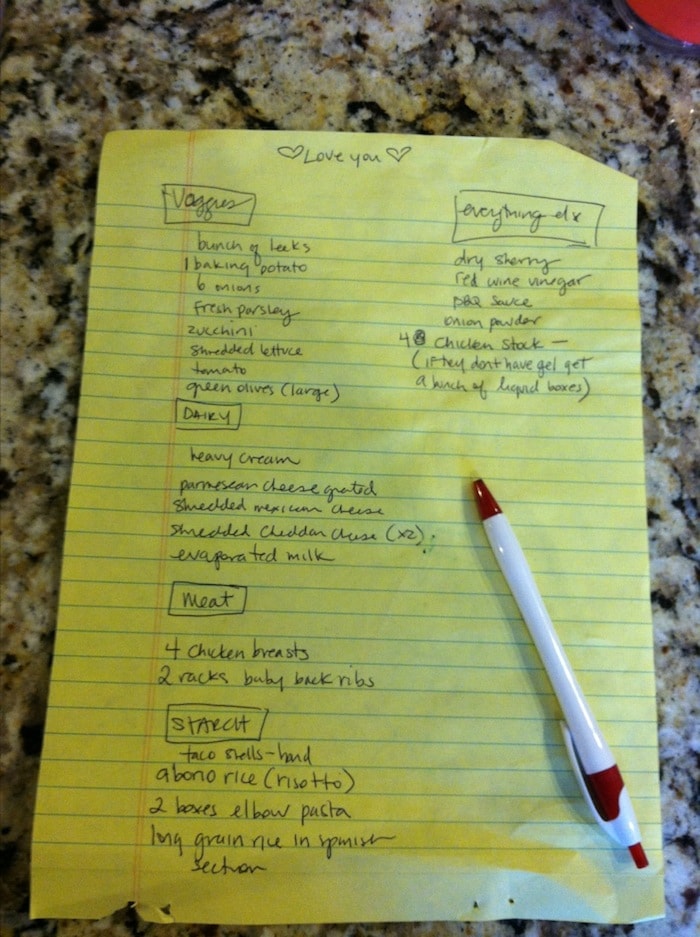 ♡ Love you ♡
Veggies
bunch of leeks
1 baking potato
6 onions
fresh parsley
zucchini
shredded lettuce
tomato
green olives (large)
DAIRY
heavy cream
parmesean cheese grated
shredded mexican cheese
shredded cheddar cheese (x2)
evaporated milk
Meat
4 chicken breasts
2 racks baby back ribs
STARCH
taco shells - hard
aborio rice (risotto)
2 boxes elbow pasta
long grain rice in spanish
section
everything else
dry sherry
red wine vinegar
BBQ sauce
onion powder
4 Chicken Stock -
(if they don't have gel get
a bunch of liquid boxes)